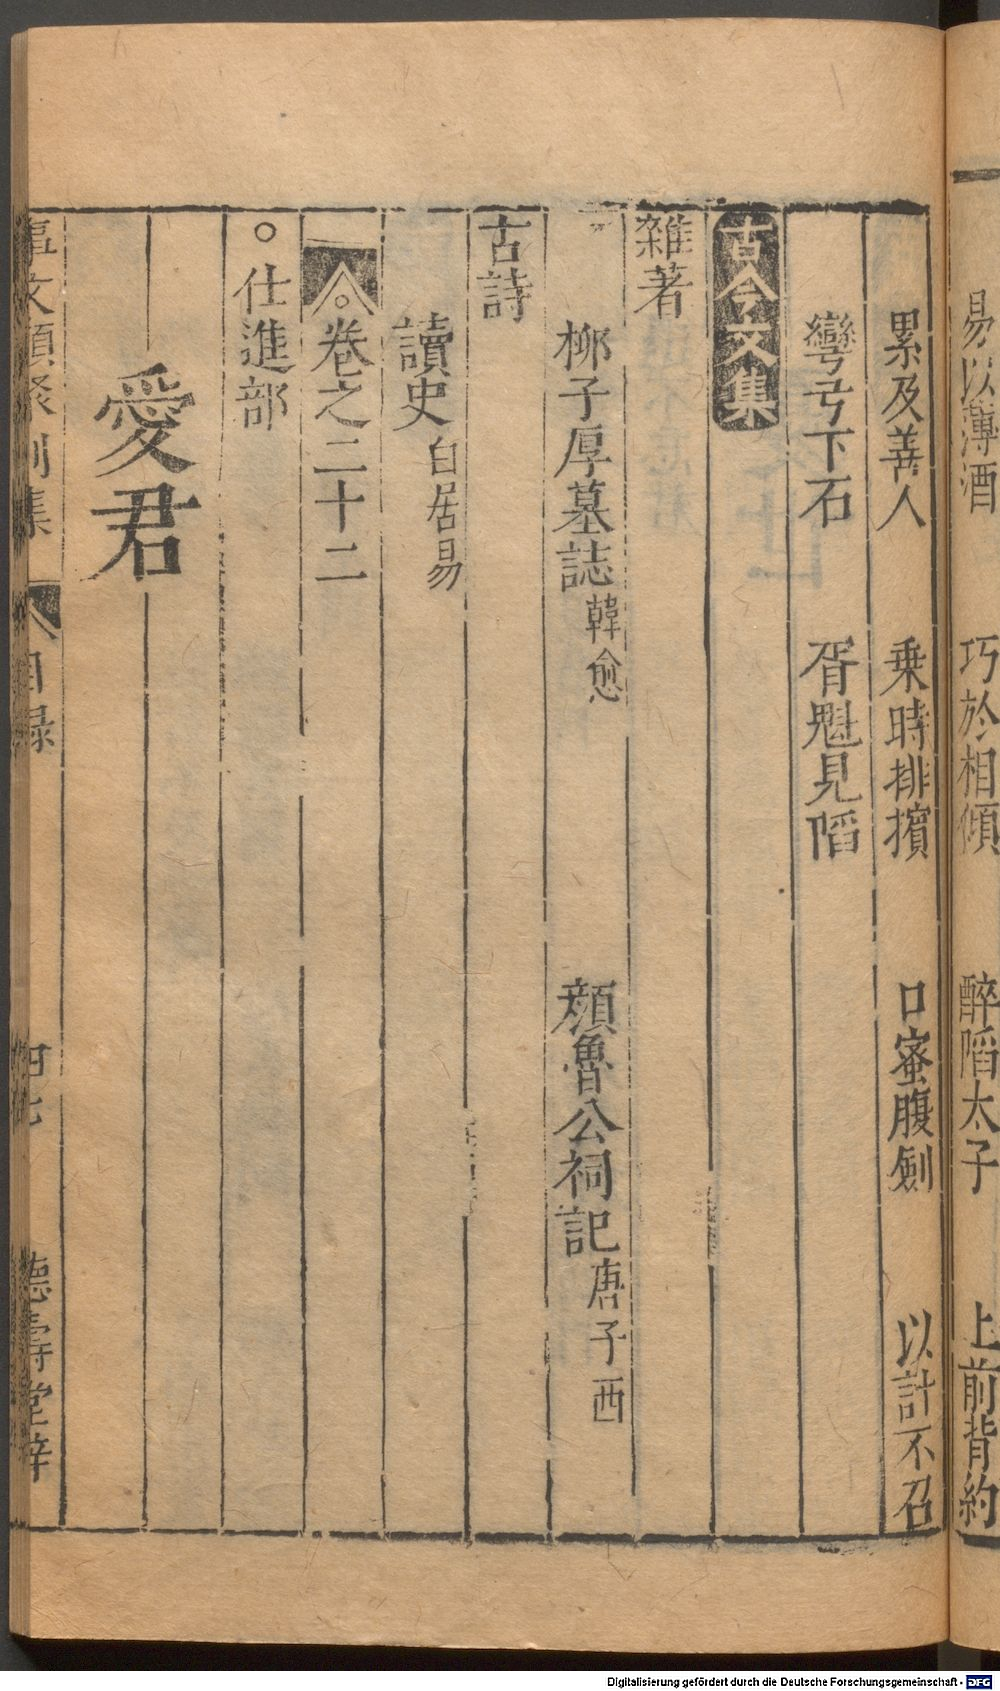 易以薄酒　巧於相傾　醉蹈太子　上前背約
累及善人　乗時排擯　口蜜腹劍　以計不召
彎弓下石　胥魁見蹈
古今文集
雜著
柳子厚墓誌 韓愈　顏魯公祠記 唐子西
古詩
讀史 白居易
卷之二十二
○仕進部
愛君
事文類聚別集　目録　四七　德壽堂梓
Digitalisierung gefördert durch die Deutsche Forschungsgemeinschaft - DFG